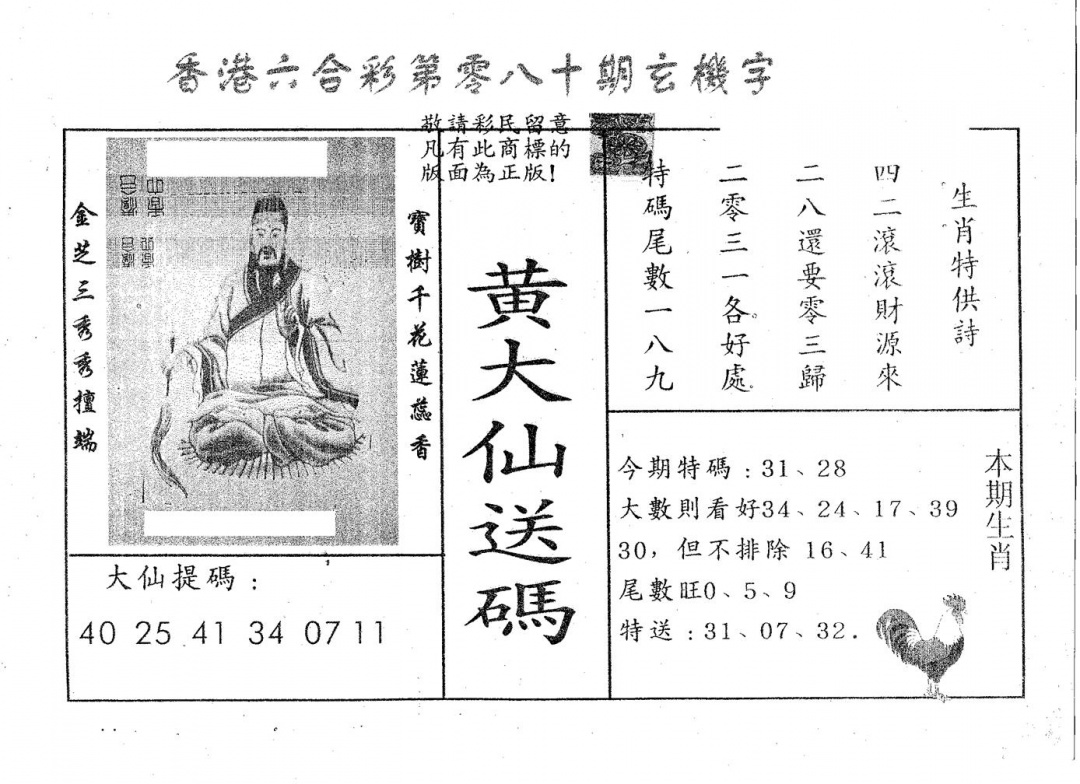 香港六合彩第零八十期玄機字
敬請彩民留意
凡有此商標的
版面為正版!
金芝三秀秀擅端
寶樹千花蓮蕊香
大仙提碼:
40 25 41 34 07 11
黄大仙送碼
生肖特供詩
四二滾滾財源來
二八還要零三歸
二零三一各好處
特碼尾數一八九
本期生肖
今期特碼:31、28
大數則看好34、24、17、39
30,但不排除 16、41
尾數旺0、5、9
特送:31、07、32.